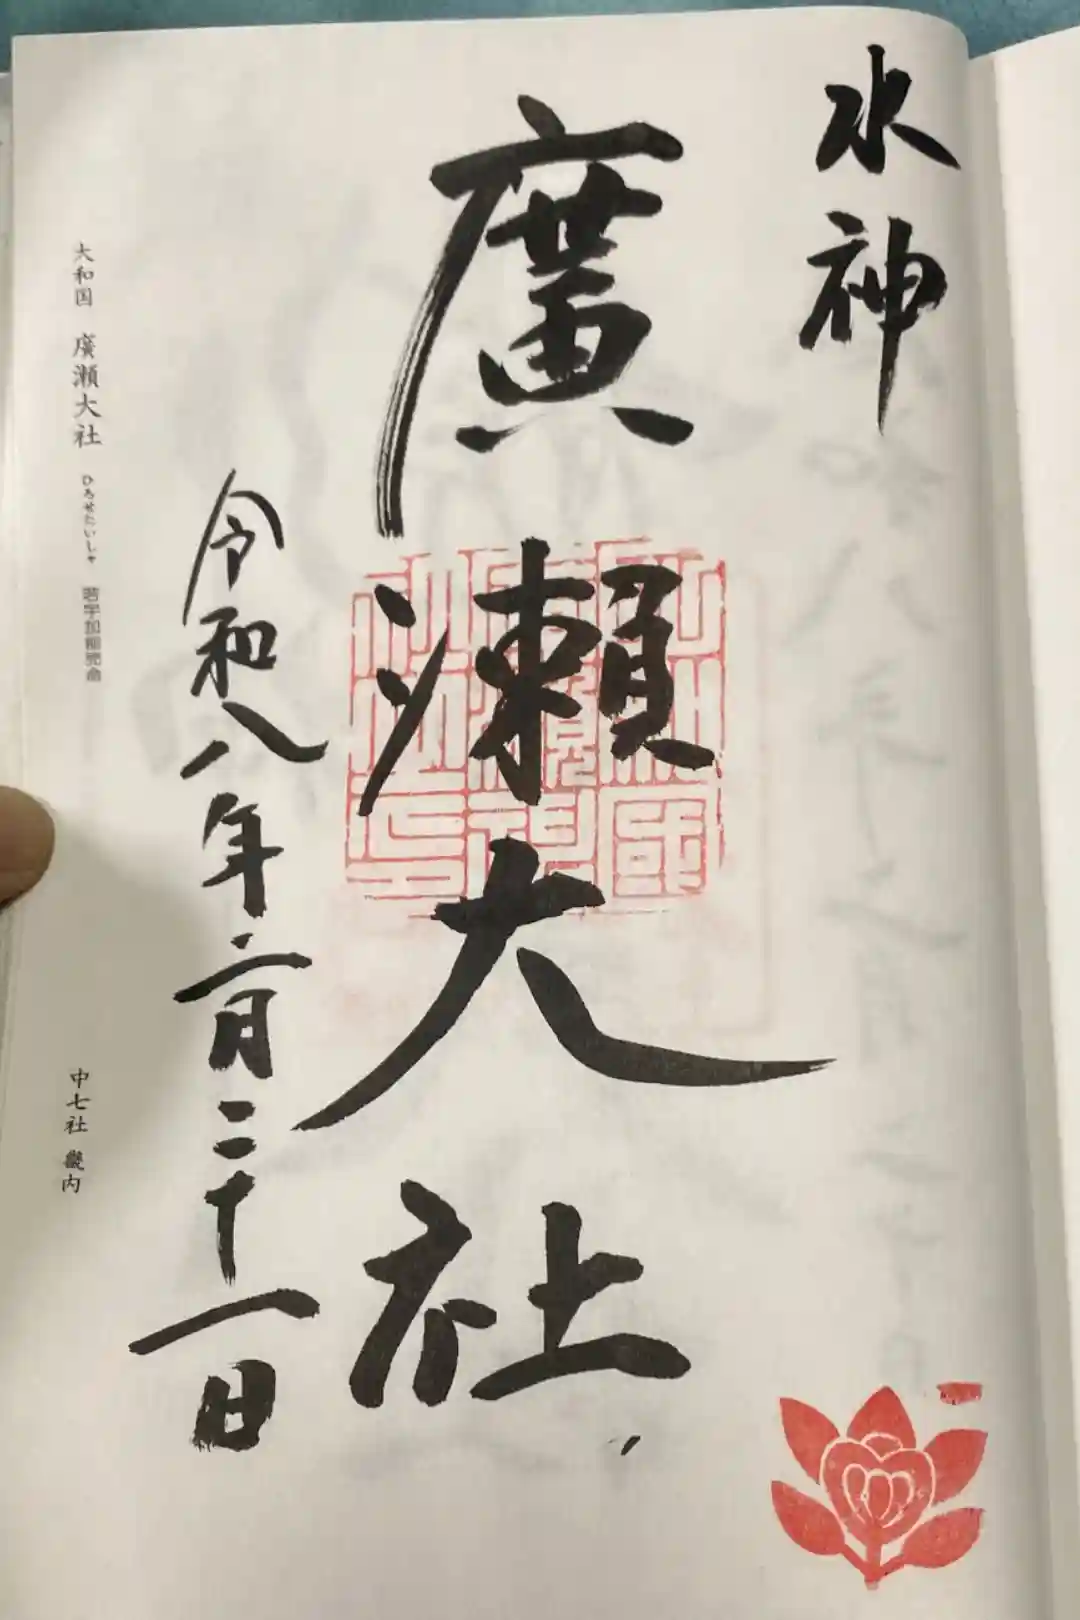 水神
廣瀬大社
令和八年二月二十一日
大和国 廣瀬大社 ひろせたいしゃ 若宇加能売命
中七社 畿内